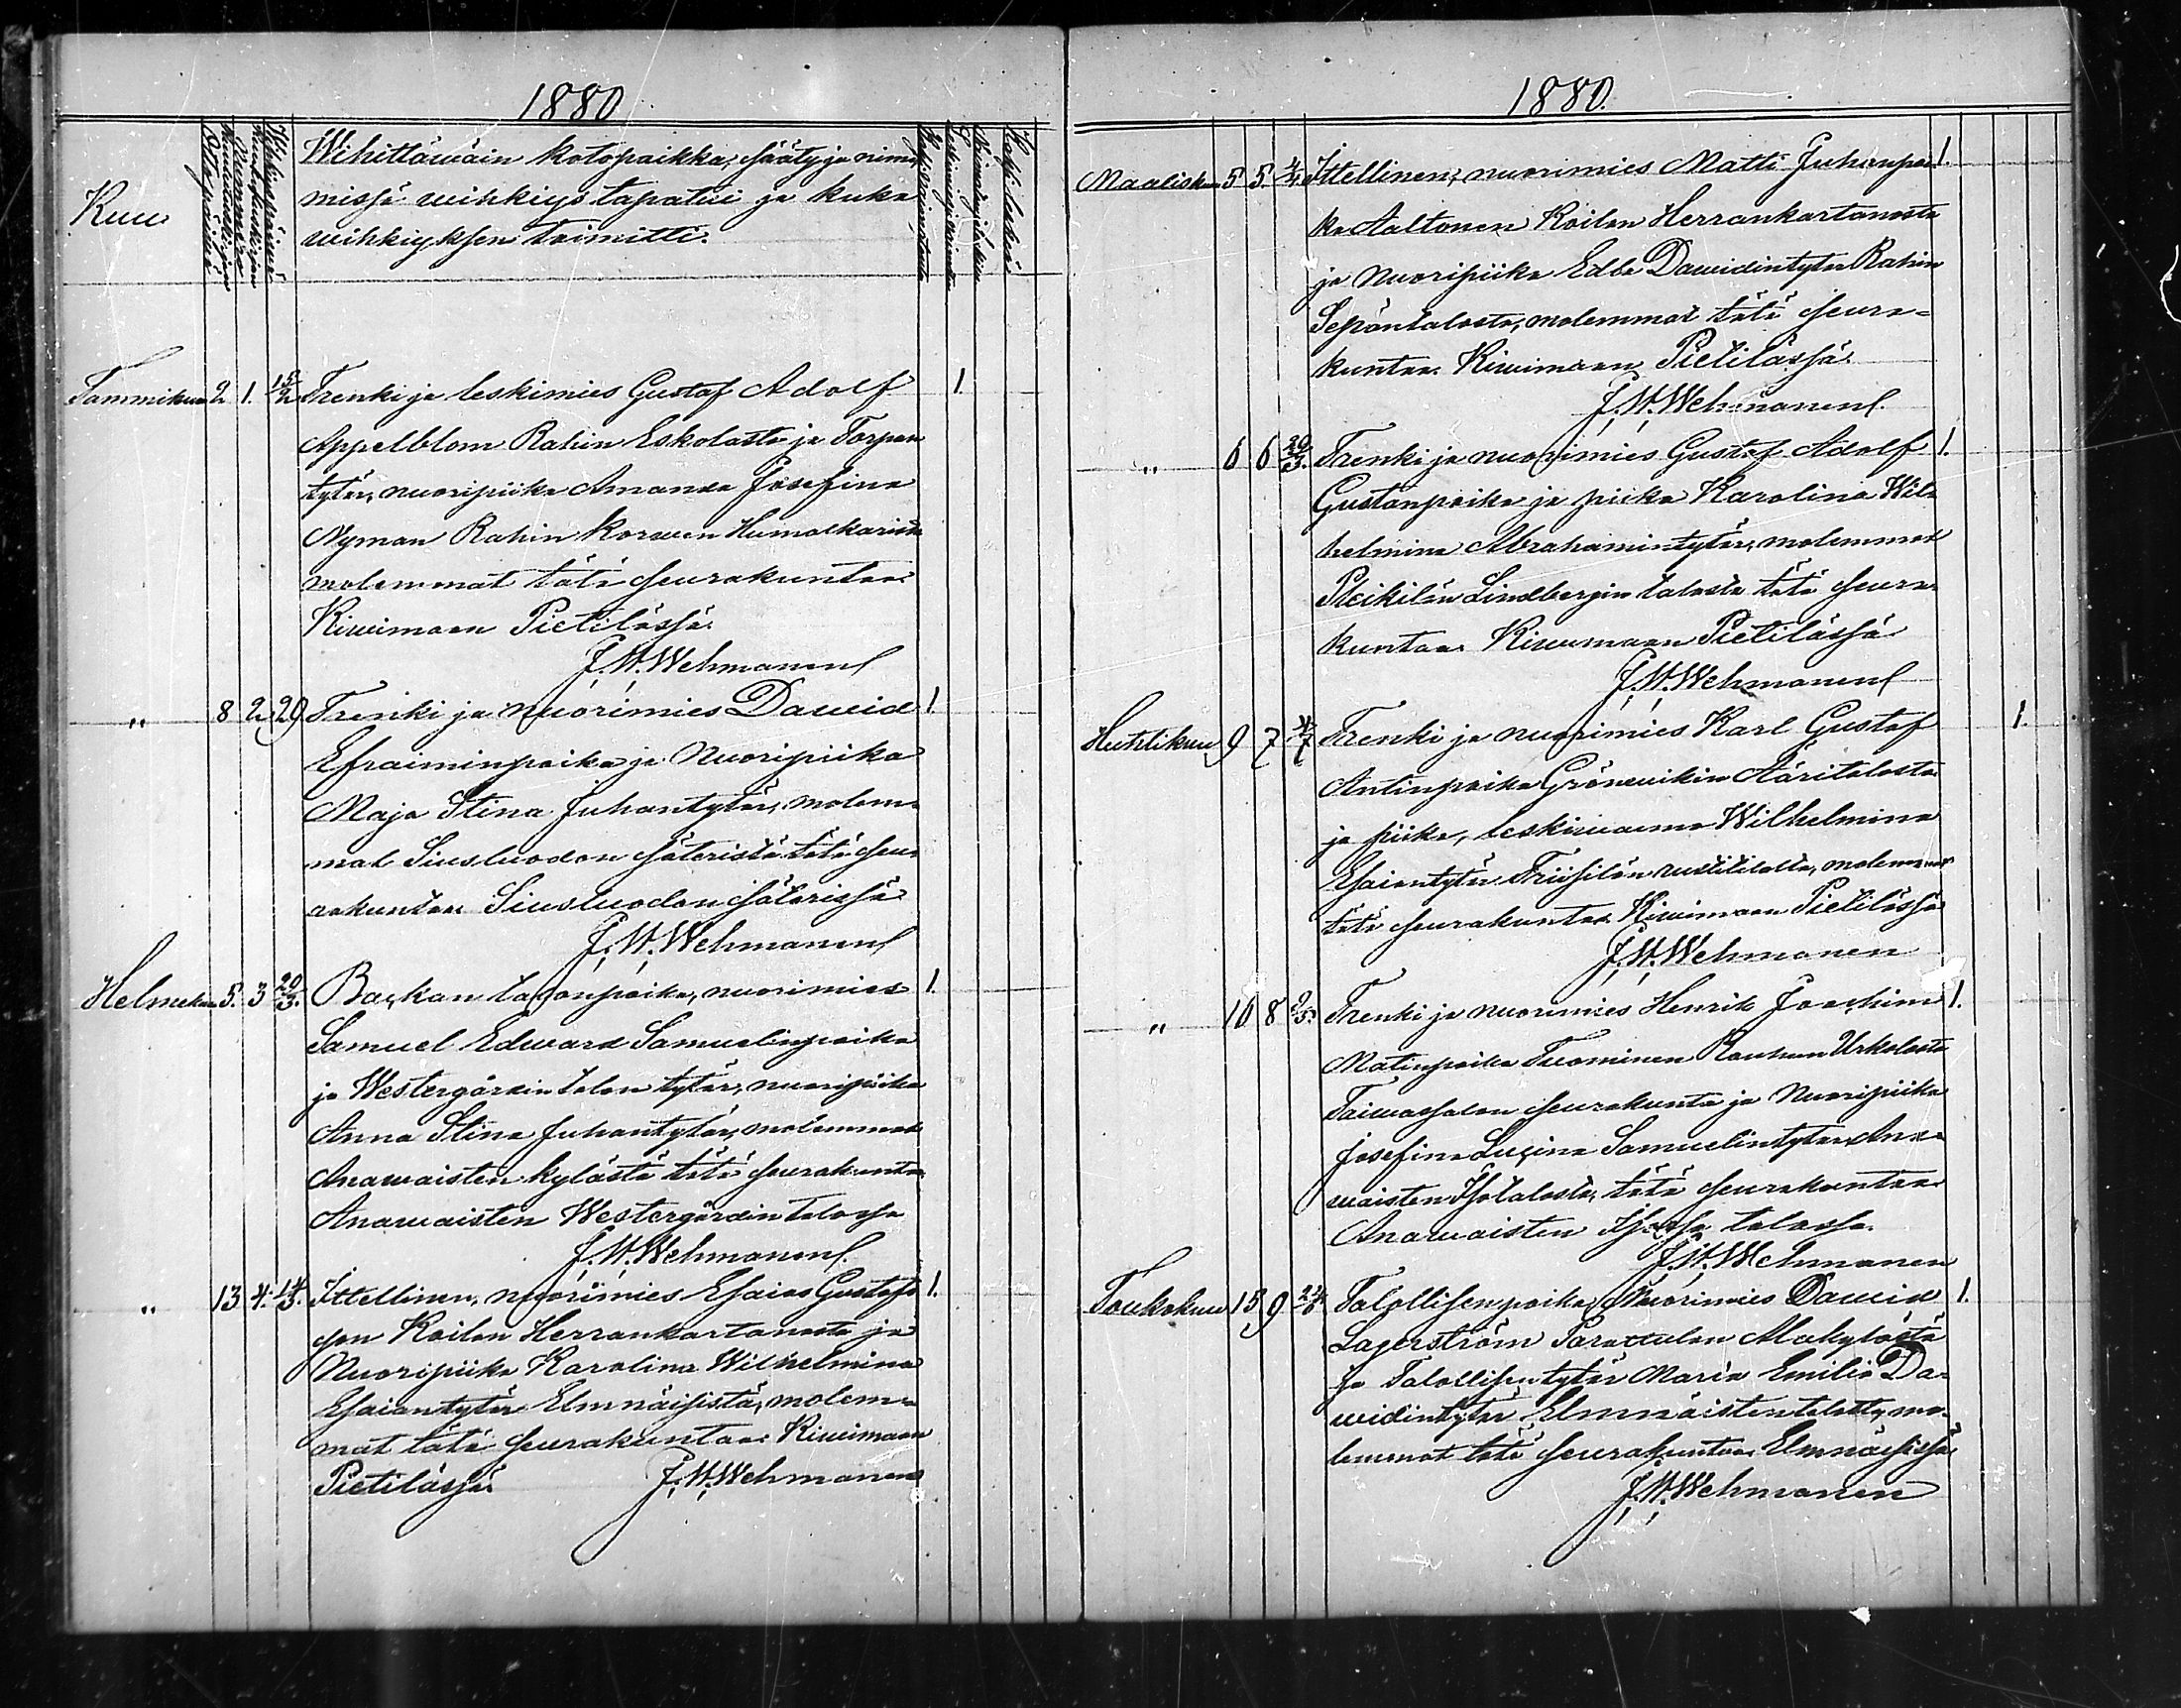 1880
Kuu
Wihittäwäin kotopaikka, sääty ja nimi,
missä wihkiys tapatui ja kuka
wihkiyksen toimitti.
Tammikuu 2 1. 15/2 Trenki ja leskimies Gustaf Adolf 1.
Appelblom Rahin Eskolasta ja Torpan
tytär, nuoripiika Amanda Josefina
Nyman Rahin Korwen Humalkarista
molemmat tätä seurakuntaa
Kiwimaan Pietilässä.
J. W. Wehmanen
" 8 2 29 Trenki ja nuorimies Dawid 1.
Efraiminpoika ja Nuoripiika
Maja Stina Juhantytär, molem-
mat Siusluodon säteristä tätä seu-
rakuntaa Siusluodon säterissä
J. W. Wehmanen
Helmikuu 5. 3 20/3. talonpoika, nuorimies 1.
Samuel Edward Samuelinpoika
ja Westergårdin talon tytär, nuoripiika
Anna Stina Juhantytär, molemmat
Anawaisten kylästä tätä seurakuntaa
Anawaisten Westergårdin talossa
J. W. Wehmanen.
" 13 4. 14/3. Ittellinen, nuorimies Esaias Gustafs 1.
son Koilan Herrankartanosta ja
Nuoripiika Karolina Wilhelmina
Esaiantytär Elmnäisistä, molem-
mat tätä seurakuntaa Kiwimaan
Pietilässä. J. W. Wehmanen
1880.
Maalisku 5 5. 4/4 Ittellinen, nuorimies Matti Juhanpoi 1.
ka Aaltonen Koilan Herrankartanosta
ja Nuoripiika Edla Dawidintytär Rahin
Sepäntalosta, molemmat tätä seura-
kuntaa Kiwimaan Pietilässä.
J. W. Wehmanen.
" 6 6 20/3. Trenki ja nuorimies Gustaf Adolf 1.
Gustanpoika ja piika Karolina Wil-
helmina Abrahamintytär, molemmat
Pleikilän Lindbergin talosta tätä seura-
kuntaa Kiwimaan Pietilässä
J. W. Wehmanen
Huhtikuu 9 7 Trenki ja nuorimies Karl Gustaf 1.
Antinpoika Grönwikin Ääritalosta
ja piika, leskiwaimo Wilhelmina
Esaiantytär Friisilän rustitilalta, molemmat
tätä seurakuntaa Kiwimaan Pietilässä
J. W. Wehmanen
" 10 8 2/5. Trenki ja nuorimies Henrik Joachim 1.
Matinpoika Tuominen Urkolasta
Taiwassalon seurakunta ja Nuoripiika
Josefina Lusina Samuelintytär Ana-
waisten Isotalosta, tätä seurakuntaa
Anawaisten talossa.
J. W. Wehmanen
Toukokuu 15 9 Talollisenpoika, Nuorimies Dawid 1.
Lagerström Parattulan Alakylästä
ja Talollisentytär Maria Emilia Da-
widintytär Elmnäisten talosta, mo-
lemmat tätä seurakuntaa Elmnäisissä
J. W. Wehmanen